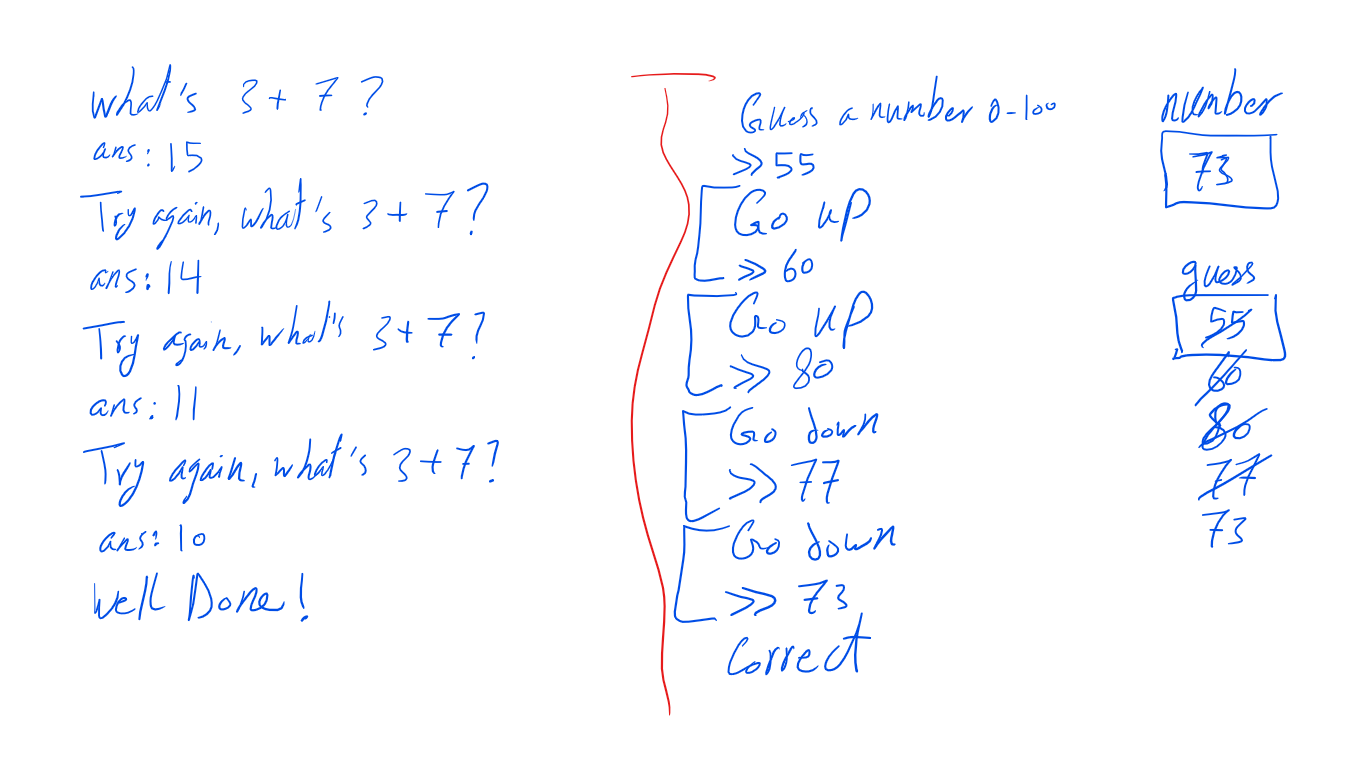 what's 3 + 7 ?
ans: 15
Try again, what's 3 + 7 ?
ans: 14
Try again, what's 3 + 7 ?
ans: 11
Try again, what's 3 + 7 ?
ans: 10
Well Done!
Guess a number 0-100
>> 55
Go up
>> 60
Go up
>> 80
Go down
>> 77
Go down
>> 73
Correct
number
73
guess
55
60
80
77
73